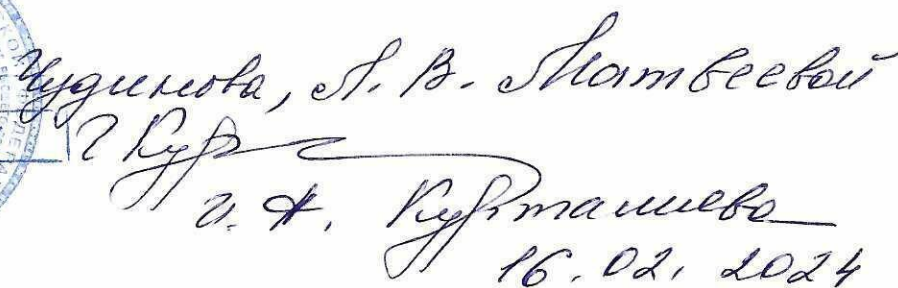 Чудинова, Л. В. Матвеевой
Г. А. Курталиева
16.02.2024